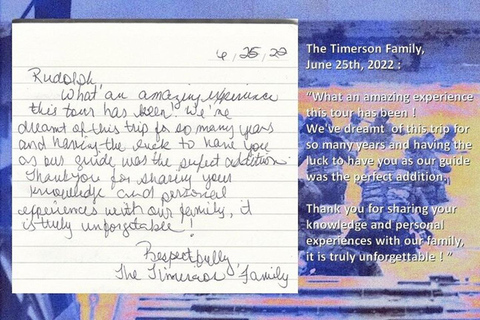 6/25/22
Rudolph,
What an amazing experience
this tour has been! We've
dreamt of this trip for so many years
and having the luck to have you
as our guide was the perfect addition.
Thank you for sharing your
knowledge and personal
experiences with our family, it
is truly unforgettable!
Respectfully,
The Timerson Family
The Timerson Family,
June 25th, 2022 :
“What an amazing experience
this tour has been !
We've dreamt of this trip for
so many years and having the
luck to have you as our guide
was the perfect addition.
Thank you for sharing your
knowledge and personal
experiences with our family,
it is truly unforgettable ! ”